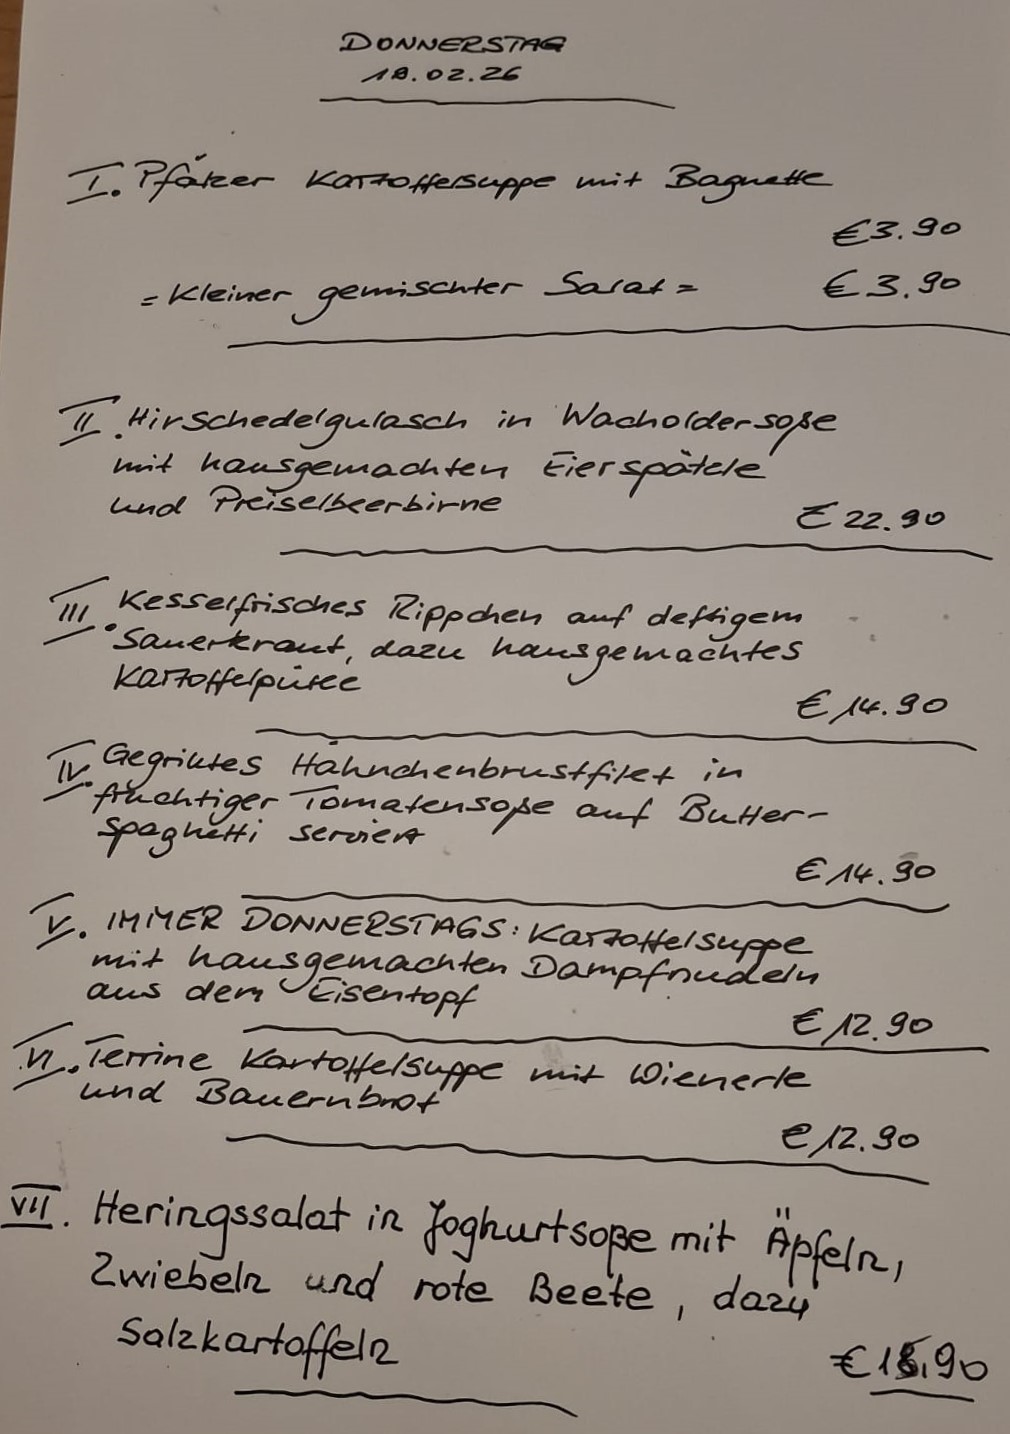 DONNERSTAG
19.02.26
I. Pfälzer Kartoffelsuppe mit Baguette
€3.90
= Kleiner gemischter Salat = €3.90
II. Hirschedelgulasch in Wacholdersoße
mit hausgemachten Eierspätzle
und Preiselbeerbirne
€22.90
III. Kesselfrisches Rippchen auf deftigem
Sauerkraut, dazu hausgemachtes
Kartoffelpüree
€14.90
IV. Gegrilltes Hähnchenbrustfilet in
fruchtiger Tomatensoße auf Butter-
spaghetti serviert
€14.90
V. IMMER DONNERSTAGS: Kartoffelsuppe
mit hausgemachten Dampfnudeln
aus dem Eisentopf
€12.90
VI. Terrine Kartoffelsuppe mit Wienerle
und Bauernbrot
€12.90
VII. Heringssalat in Joghurtsoße mit Äpfeln,
Zwiebeln und rote Beete, dazu
Salzkartoffeln